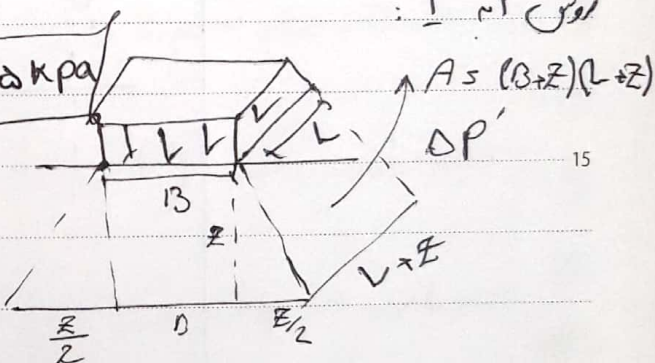 روش
kPa
A = (B+Z)(L+Z)
ΔP'
15
L
B
Z
L+Z
Z/2 B Z/2